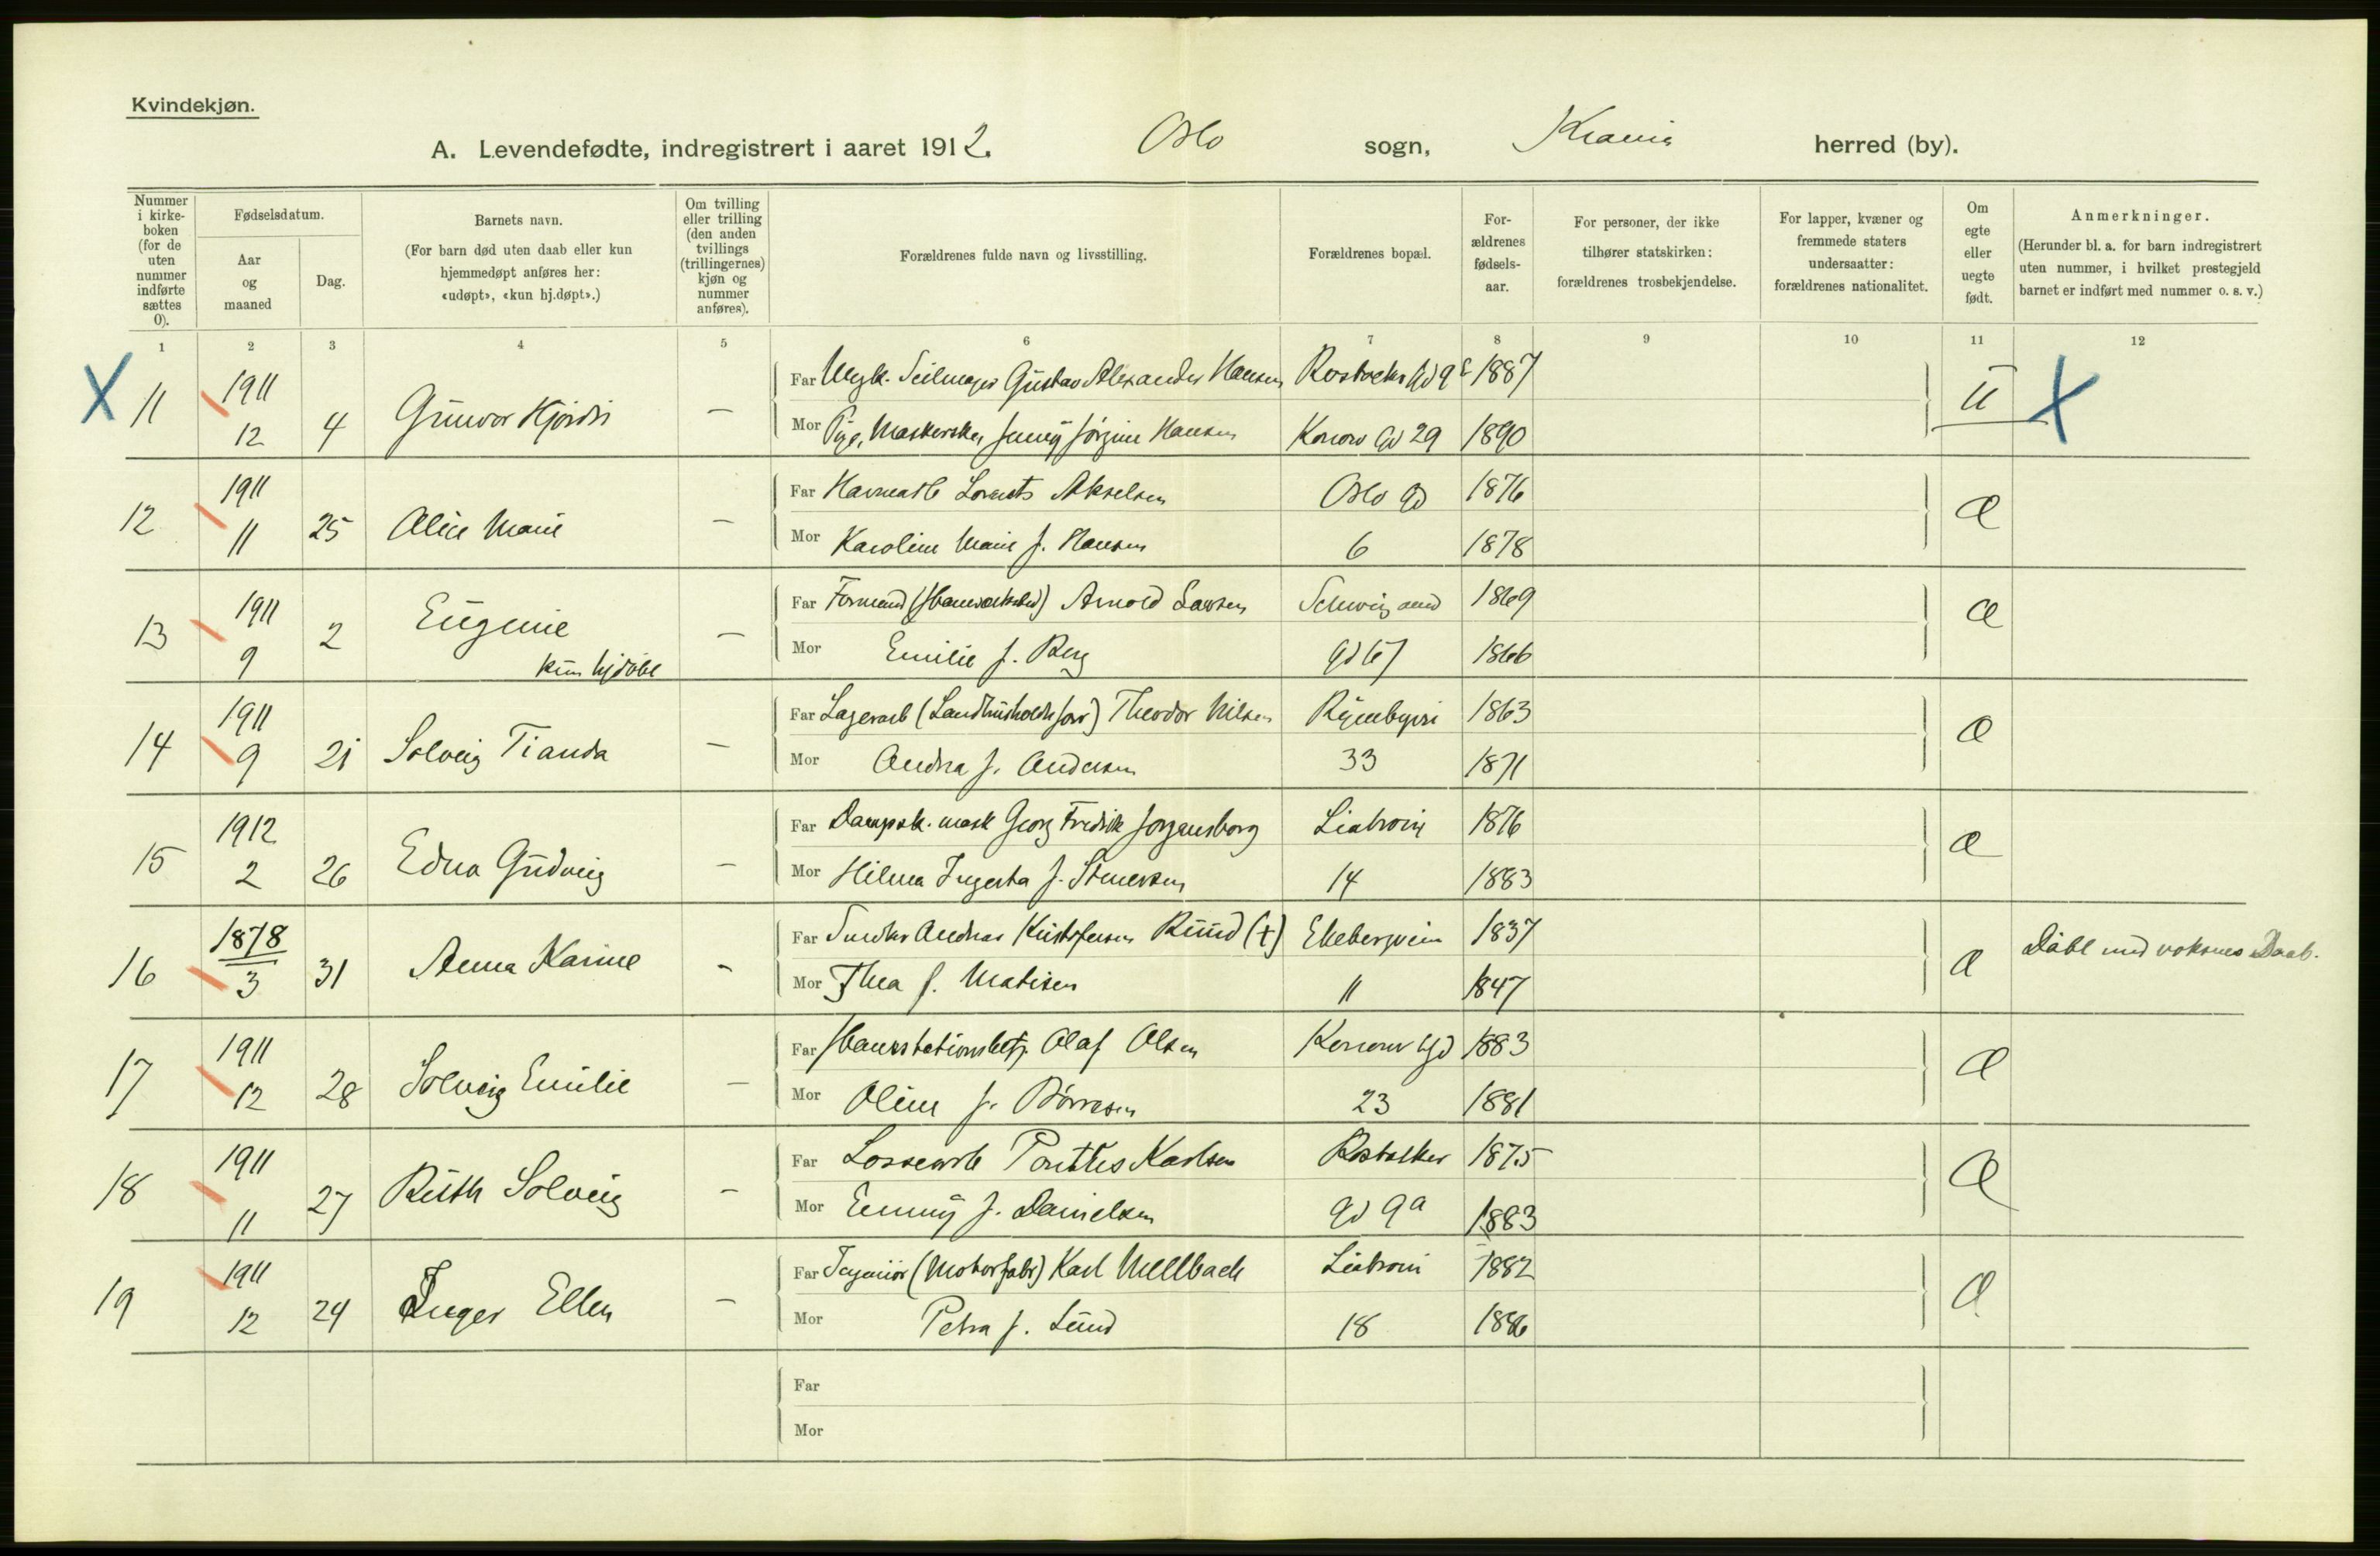 Kvindekjøn.
A. Levendefødte, indregistrert i aaret 1912. Oslo sogn, Krania herred (by).
Nummer i kirkeboken (for de uten nummer indførte sættes 0).
Fødselsdatum.
Aar og maaned
Dag.
Barnets navn.
(For barn død uten daab eller kun hjemmedøpt anføres her: «udøpt», «kun hj.døpt».)
Om tvilling eller trilling (den anden tvillings (trillingernes) kjøn og nummer anføres).
Forældrenes fulde navn og livsstilling.
Forældrenes bopæl.
Forældrenes fødselsaar.
For personer, der ikke tilhører statskirken: forældrenes trosbekjendelse.
For lapper, kvæner og fremmede staters undersaatter: forældrenes nationalitet.
Om egte eller uegte født.
Anmerkninger.
(Herunder bl. a. for barn indregistrert uten nummer, i hvilket prestegjeld barnet er indført med nummer o. s. v.)
1 2 3 4 5 6 7 8 9 10 11 12
X 11 1911 12 4 Gunvor Hjørdis — Far Ugk. Seilmager Gustav Alexander Hansen Rostocks Gd 9 1887 U X
Mor Pige, Jenny Jørgine Hansen Konow Gd 29 1890
12 1911 11 25 Alice Marie — Far Havnearb Lorents Akselsen Oslo Gd 1876 Æ
Mor Karoline Marie f. Hansen 6 1878
13 1911 9 2 Eugenie — Far Formand Arnold Larsen Schweigaard 1869 Æ
kun hjdøbt Mor Emilie f. Berg Gd 67 1866
14 1911 9 21 Solveig Tianda — Far Lagerarb (Landhusholdn forr) Theodor Nilsen Ryenbgvei 1863 Æ
Mor Andrea f. Andersen 33 1871
15 1912 2 26 Edna Gudveig — Far Dampsk. mask Georg Fredrik Jorgensborg Liabrovei 1876 Æ
Mor Hilma Ingerta f. Stenersen 14 1883
16 1878 3 31 Anna Karine — Far Snedker Andreas Kristofersen Ruud (†) Ekebergveien 1837 Æ Døbt med voksnes Daab.
Mor Thea f. Matisen 11 1847
17 1911 12 28 Solveig Emilie — Far Olaf Olsen Konow Gd 1883 Æ
Mor Oline f. Børresen 23 1881
18 1911 11 27 Ruth Solveig — Far Lossearb Pontus Karlsen Rostocker 1875 Æ
Mor Emmy f. Danielsen Gd 9a 1883
19 1911 12 24 Inger Ellen — Far Ingeniør (Motorfabr) Karl Mellbach Liabrovei 1882 Æ
Mor Petra f. Lund 18 1886
Far
Mor